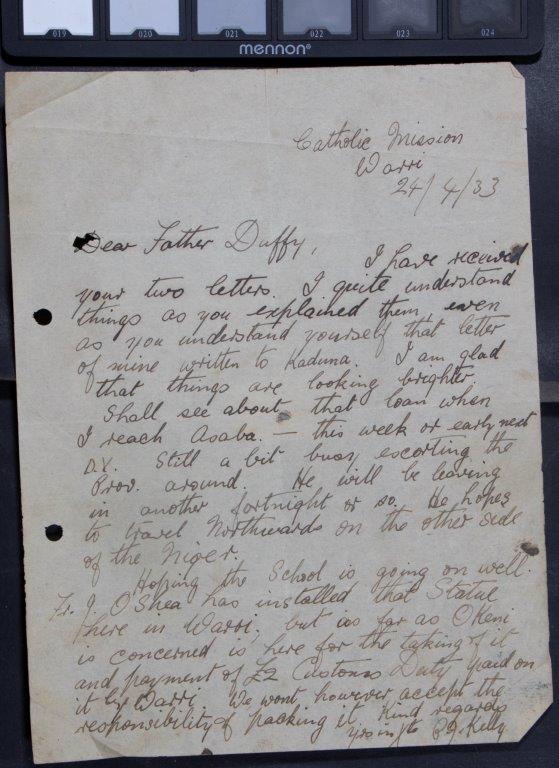 019 020 021 022 023 024
mennon®
Catholic Mission
Warri
24/4/33
Dear Father Duffy,
I have received
your two letters. I quite understand
things as you explained them even
as you understand yourself that letter
of mine written to Kaduna. I am glad
that things are looking brighter.
Shall see about that loan when
I reach Asaba. — this week or early next
D.V. Still a bit busy escorting the
Prov. around. He will be leaving
in another fortnight or so. He hopes
to travel Northwards on the other side
of the Niger.
Hoping the School is going on well.
Fr. J. O'Shea has installed that Statue
there in Warri, but as far as Okeni
is concerned is here for the taking of it
and payment of £2 Customs Duty paid on
it by Warri. We wont however accept the
responsibility of packing it. Kind regards
yrs in P.J. Kelly